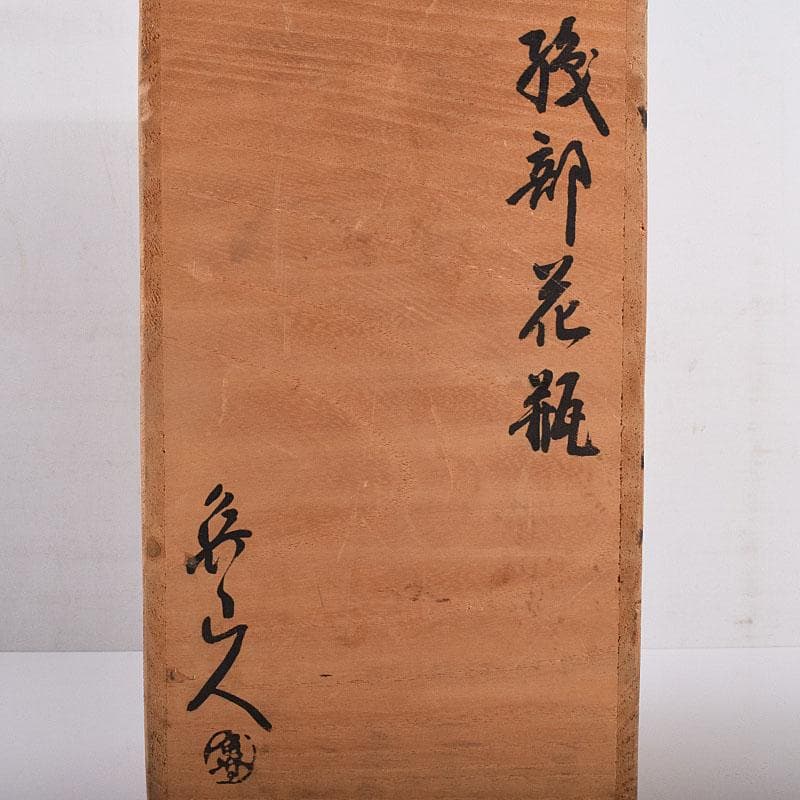 織部花瓶
山人